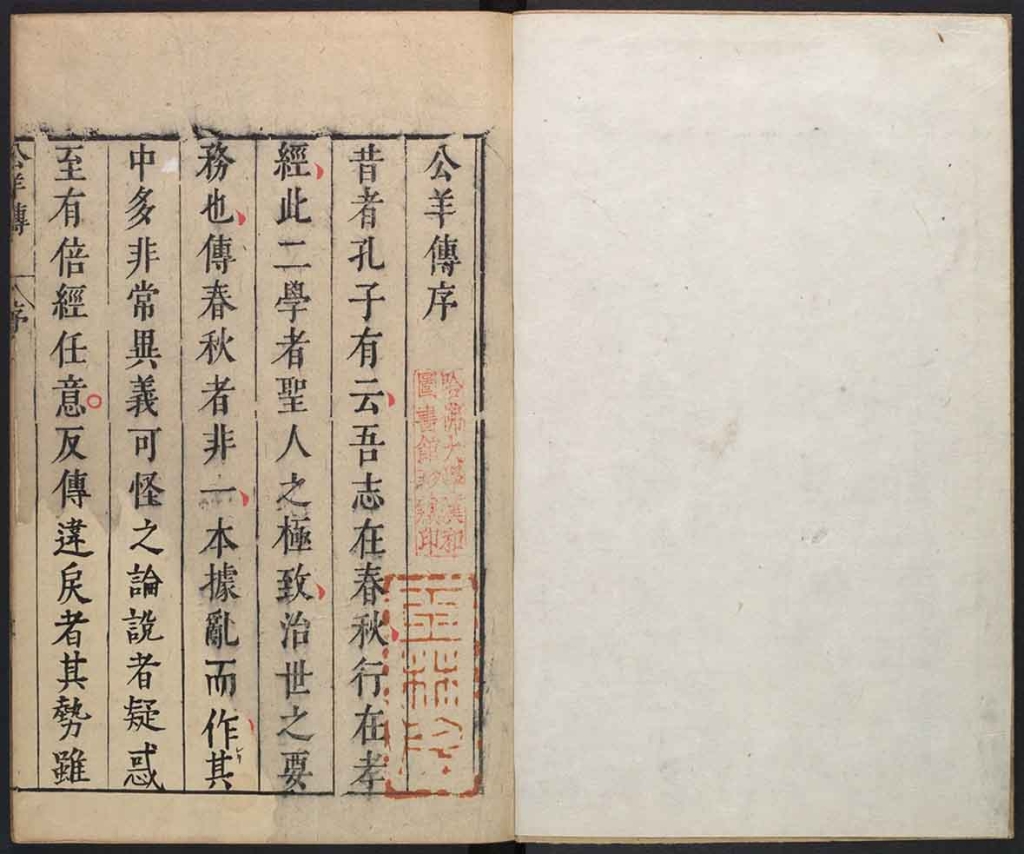 公羊傳序
昔者孔子有云吾志在春秋行在孝
經此二學者聖人之極致治世之要
務也傳春秋者非一本據亂而作其
中多非常異義可怪之論說者疑惑
至有倍經任意反傳違戾者其勢雖
公羊傳 序
哈佛大學漢和
圖書館珍藏印